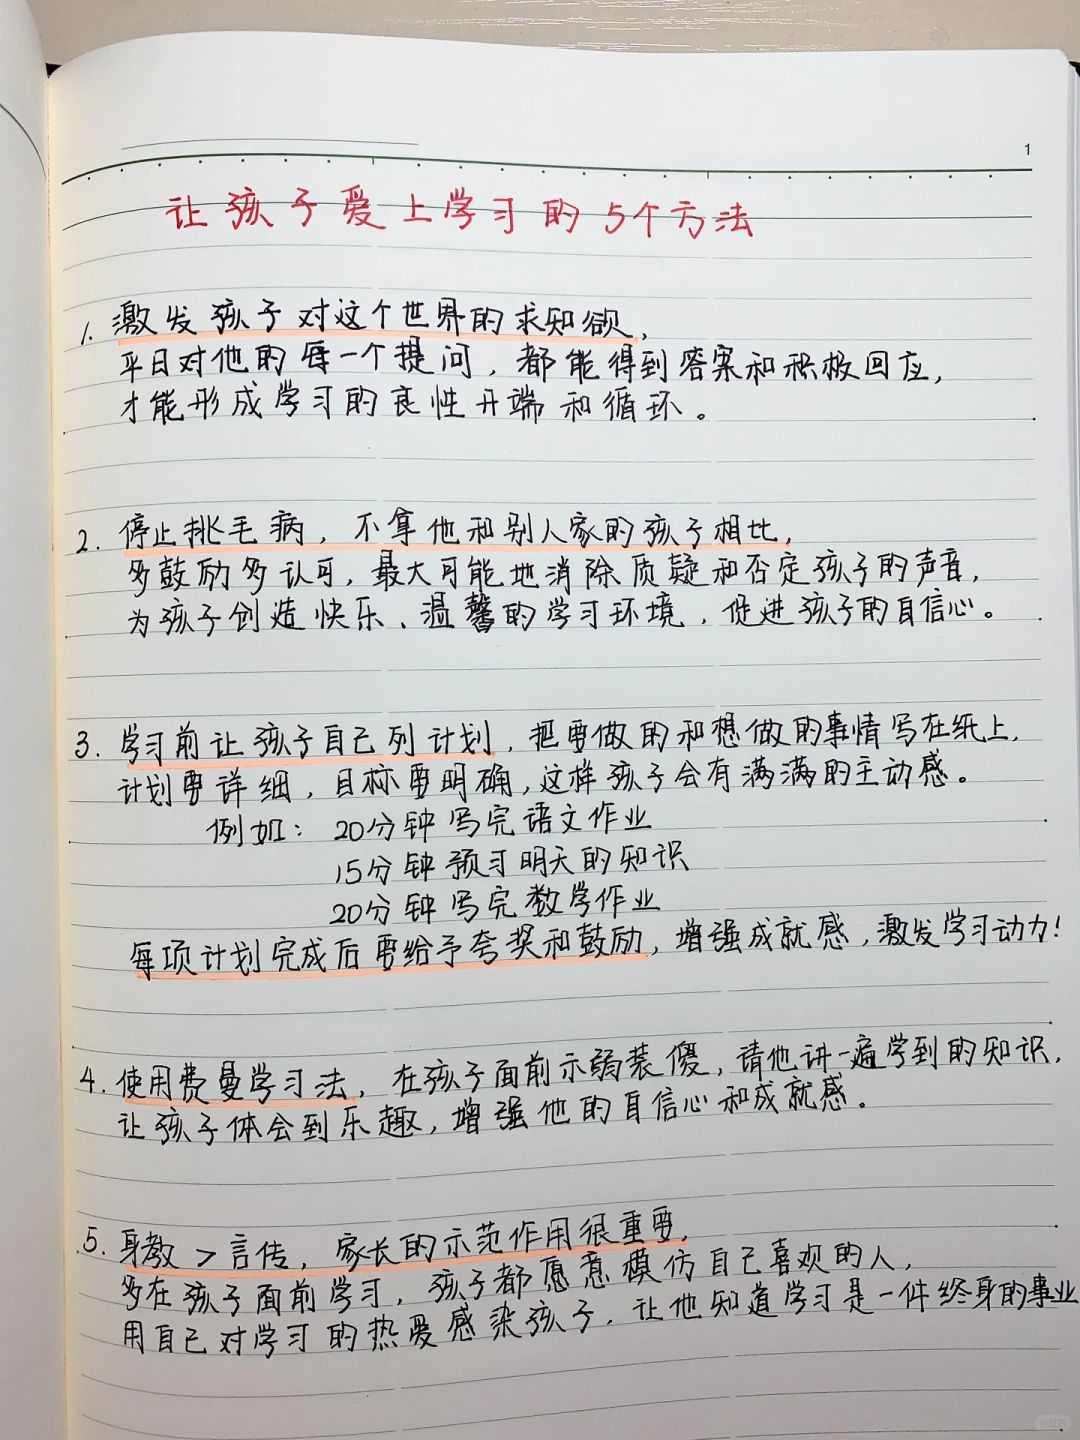 1
让孩子爱上学习的5个方法
1. 激发孩子对这个世界的求知欲，
平日对他的每一个提问，都能得到答案和积极回应，
才能形成学习的良性开端和循环。
2. 停止挑毛病，不拿他和别人家的孩子相比，
多鼓励多认可，最大可能地消除质疑和否定孩子的声音，
为孩子创造快乐、温馨的学习环境，促进孩子的自信心。
3. 学习前让孩子自己列计划，把要做的和想做的事情写在纸上，
计划要详细，目标要明确，这样孩子会有满满的主动感。
例如：20分钟写完语文作业
15分钟预习明天的知识
20分钟写完数学作业
每项计划完成后要给予夸奖和鼓励，增强成就感，激发学习动力！
4. 使用费曼学习法，在孩子面前示弱装傻，请他讲一遍学到的知识，
让孩子体会到乐趣，增强他的自信心和成就感。
5. 身教>言传，家长的示范作用很重要，
多在孩子面前学习，孩子都愿意模仿自己喜欢的人，
用自己对学习的热爱感染孩子，让他知道学习是一件终身的事业